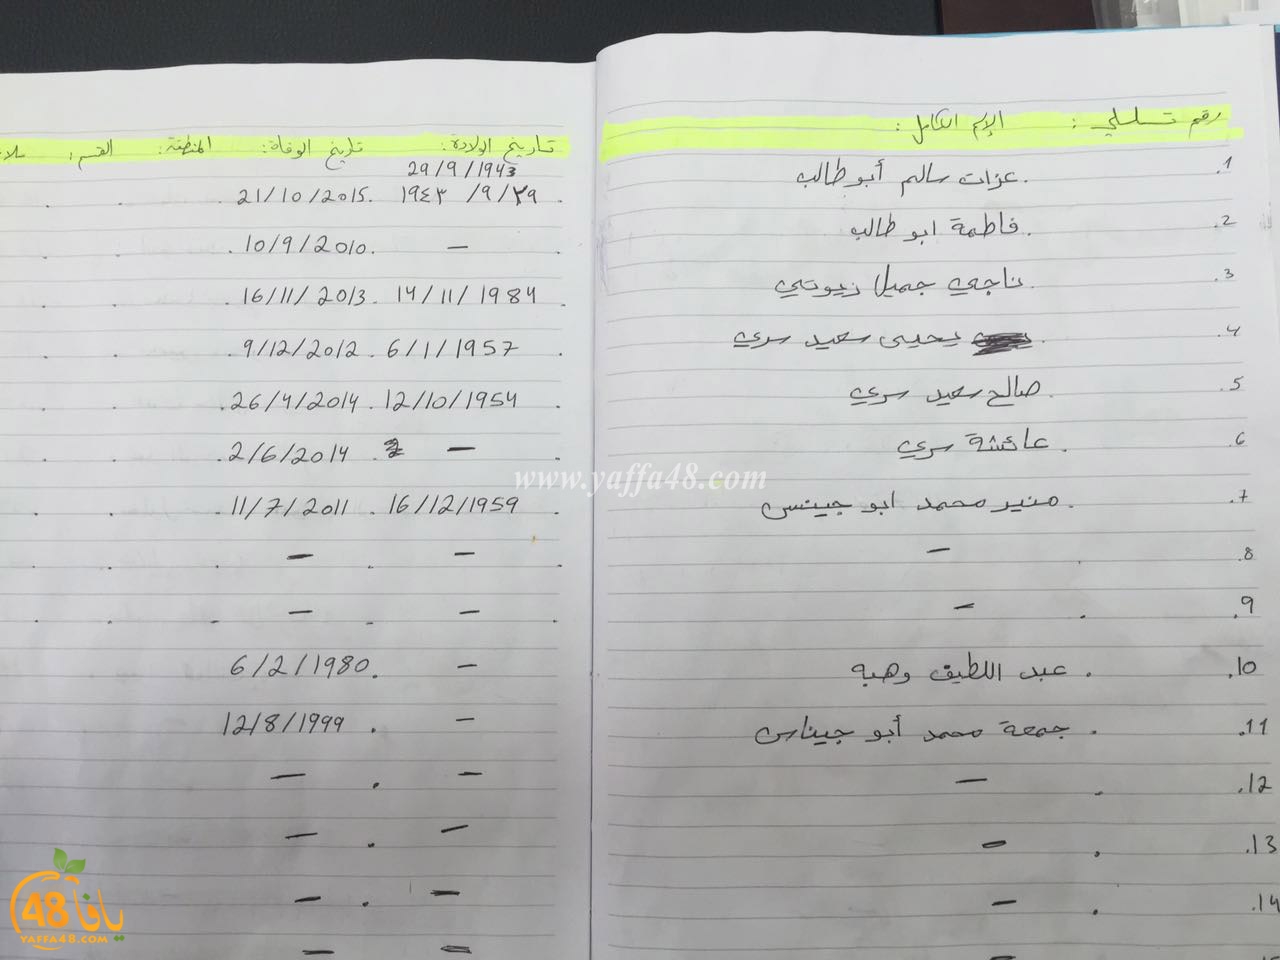 رقم تسلسلي: الإسم الكامل: تاريخ الولادة: تاريخ الوفاة: المنطقة: القسم:
29/9/1943
1. عزات سالم أبو طالب. ١٩٤٣/٩/٢٩ 21/10/2015.
2. فاطمة ابو طالب. — 10/9/2010.
3. ناجي جميل زيوتي. 14/11/1984 16/11/2013.
4. يحيى سعيد سري. 6/1/1957 9/12/2012.
5. صالح سعيد سري. 12/10/1954 26/4/2014.
6. عائشة سري. — 2/6/2014.
7. منير محمد ابو جينس. 16/12/1959 11/7/2011.
www.yaffa48.com
8. — — —
9. — — —
10. عبد اللطيف وهبه. — 6/2/1980.
11. جمعة محمد أبو جيناس. — 12/8/1999.
12. — — —
13. — — —
14. — — —
— — —
يافا 48
YAFFA48.COM